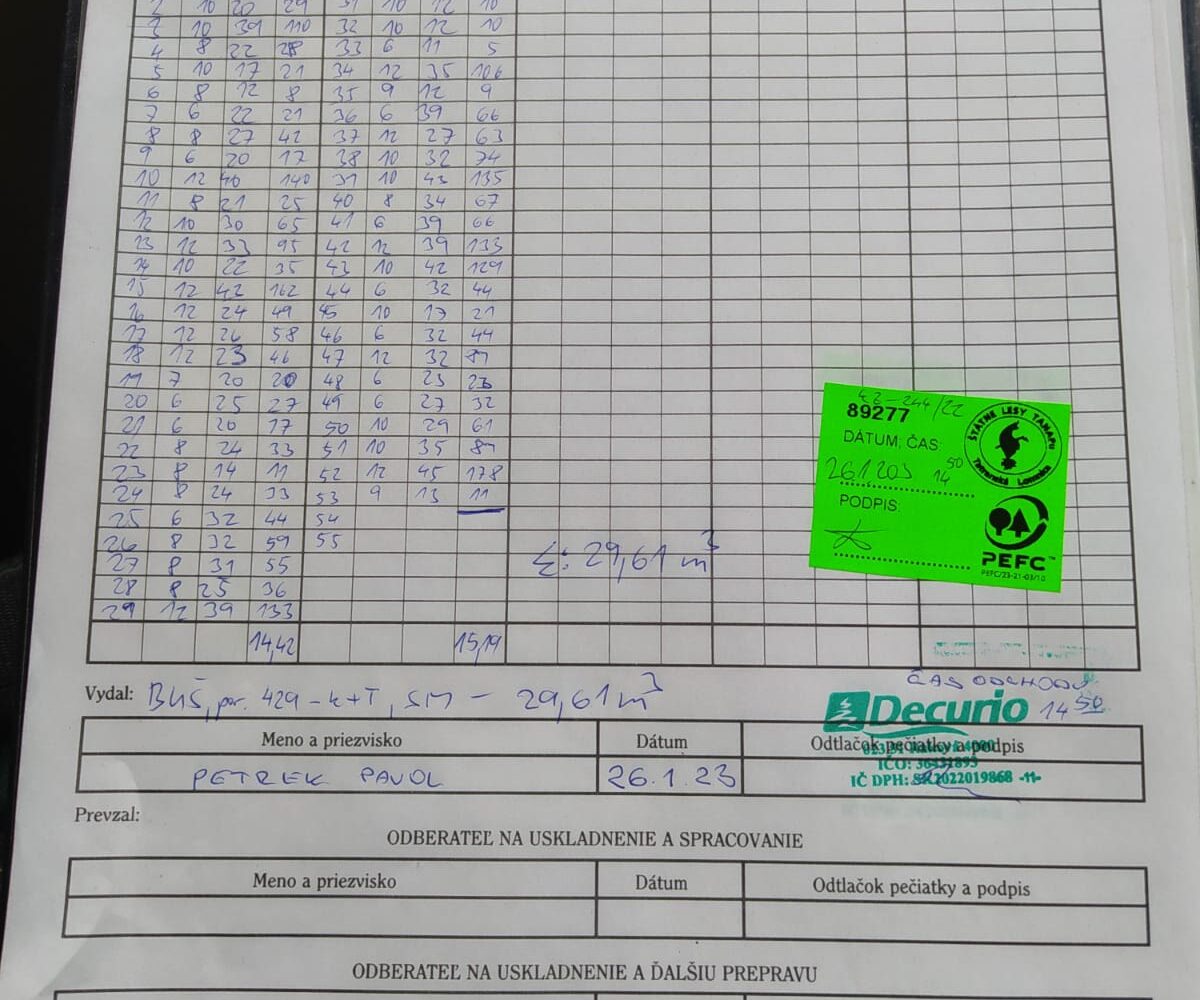 2 10 20 29 31 10 12 10
3 10 39 110 32 10 12 10
4 8 22 28 33 6 11 5
5 10 17 21 34 12 35 106
6 8 12 8 35 9 12 9
7 6 22 21 36 6 39 66
8 8 27 42 37 12 27 63
9 6 20 17 38 10 32 74
10 12 40 140 39 10 43 135
11 8 21 25 40 8 34 67
12 10 30 65 41 6 39 66
13 12 33 95 42 12 39 133
14 10 22 35 43 10 42 129
15 12 42 162 44 6 32 44
16 12 24 49 45 10 17 21
17 12 26 58 46 6 32 44
18 12 23 46 47 12 32 89
19 7 20 20 48 6 23 23
20 6 25 27 49 6 27 32
21 6 20 17 50 10 29 61
22 8 24 33 51 10 35 89
23 8 14 11 52 12 45 178
24 8 24 33 53 9 13 11
25 6 32 44 54
26 8 32 59 55
27 8 31 55
28 8 25 36
29 12 39 133
Σ: 29,61 m³
14,42 15,19
42-244/22
89277
DÁTUM, ČAS:
26.1.203 14 50
PODPIS:
ŠTÁTNE LESY TANAPu
Tatranská Lomnica
PEFC™
PEFC/23-21-03/10
ČAS ODCHODU
14 50
Vydal: BUŠ, por. 429-k+T, SM - 29,61 m³
Decurio
Meno a priezvisko Dátum Odtlačok pečiatky a podpis
IČO: 36431893
IČ DPH: SK2022019868 -11-
PETREK PAVOL 26.1.23
Prevzal:
ODBERATEĽ NA USKLADNENIE A SPRACOVANIE
Meno a priezvisko Dátum Odtlačok pečiatky a podpis
ODBERATEĽ NA USKLADNENIE A ĎALŠIU PREPRAVU